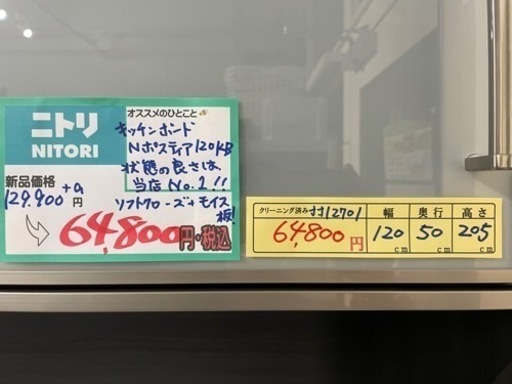 ニトリ
NITORI
新品価格
129,900+α円
オススメのひとこと
キッチンボード
Nポスティア120KB
状態の良さは、
当店No.1!!
ソフトクローズ+モイス
板!
64,800円・税込
クリーニング済み
幅
奥行
高さ
64,800円
120cm
50cm
205cm